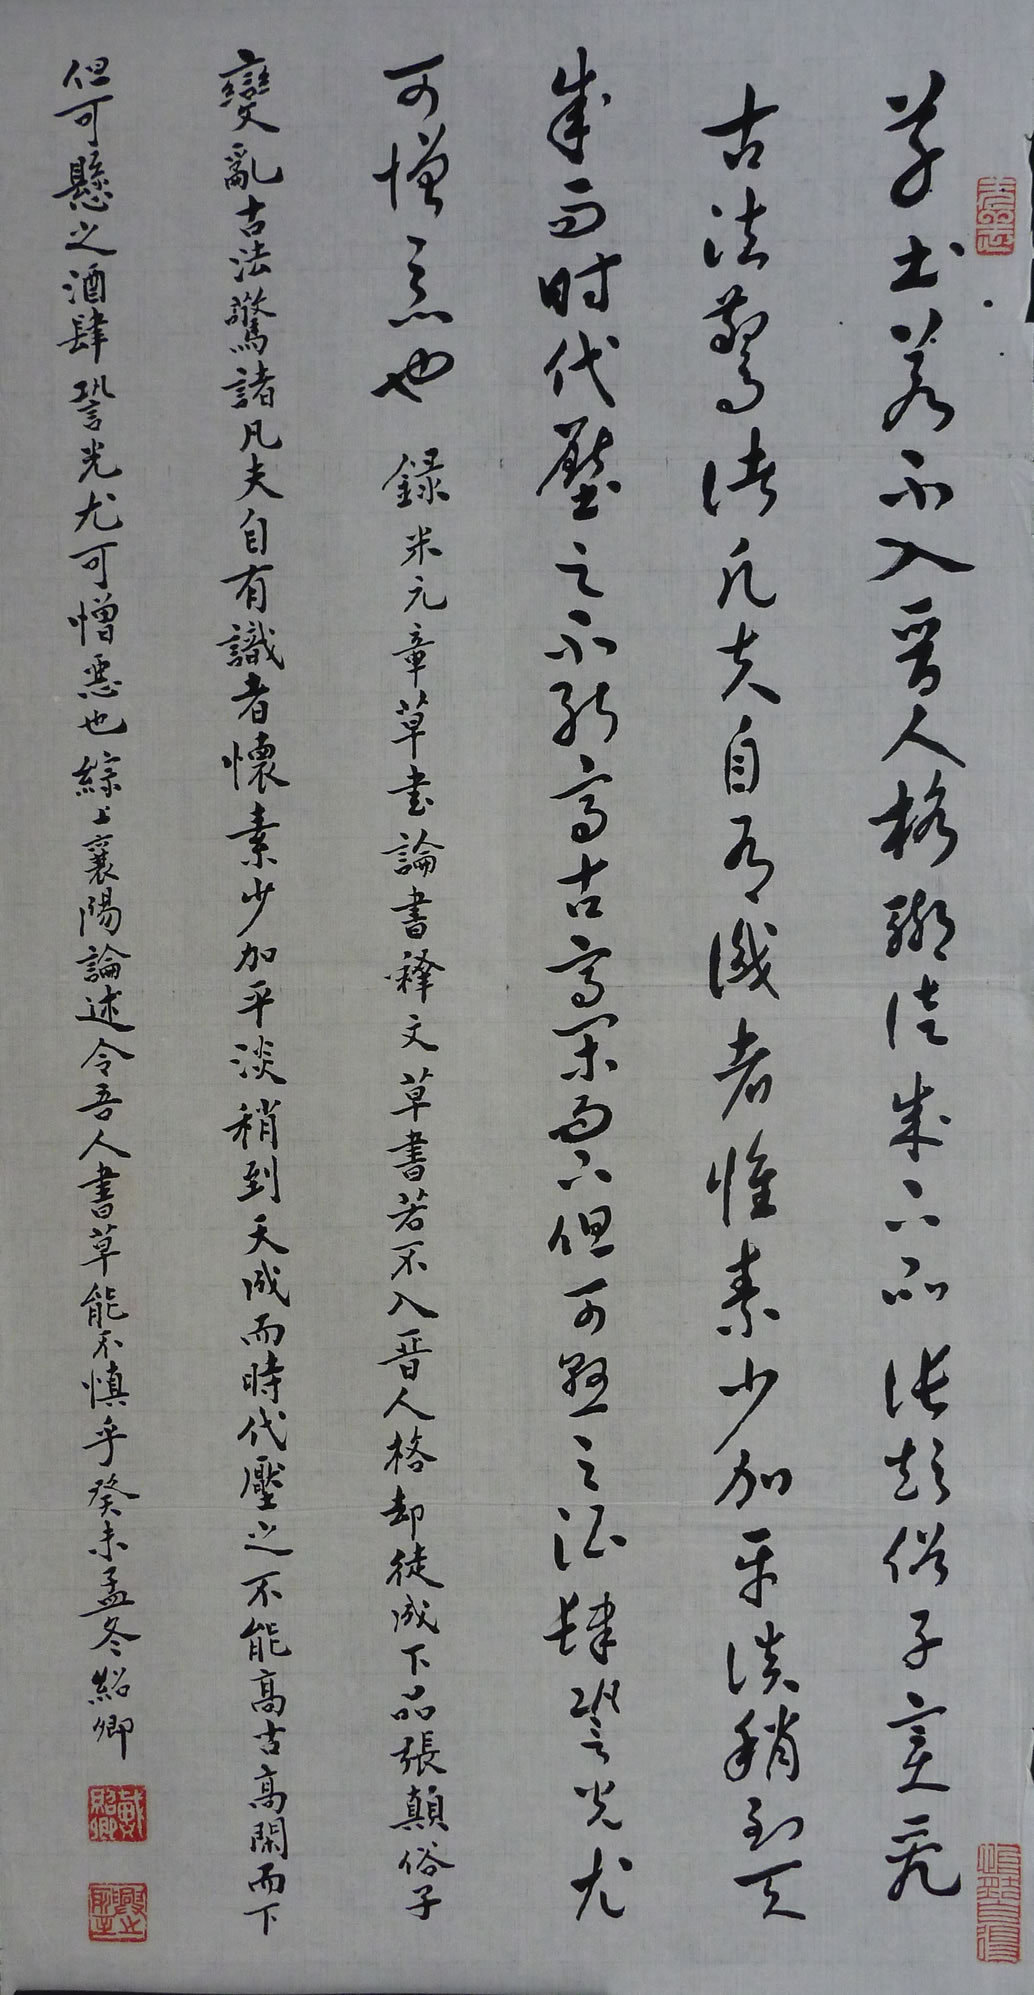 草书若不入晋人格聊徒成下品张颠俗子变乱
古法惊诸凡夫自有识者怀素少加平淡稍到天
成而时代压之不能高古高闲而下但可悬之酒肆䛒光尤
可憎恶也 録米元章草书論書释文草書若不入晋人格却徒成下品張顛俗子
變亂古法驚諸凡夫自有識者懷素少加平淡稍到天成而時代壓之不能高古高閑而下
但可懸之酒肆䛒光尤可憎惡也綜上襄陽論述令吾人書草能不慎乎癸未孟冬紹卿
戴紹卿